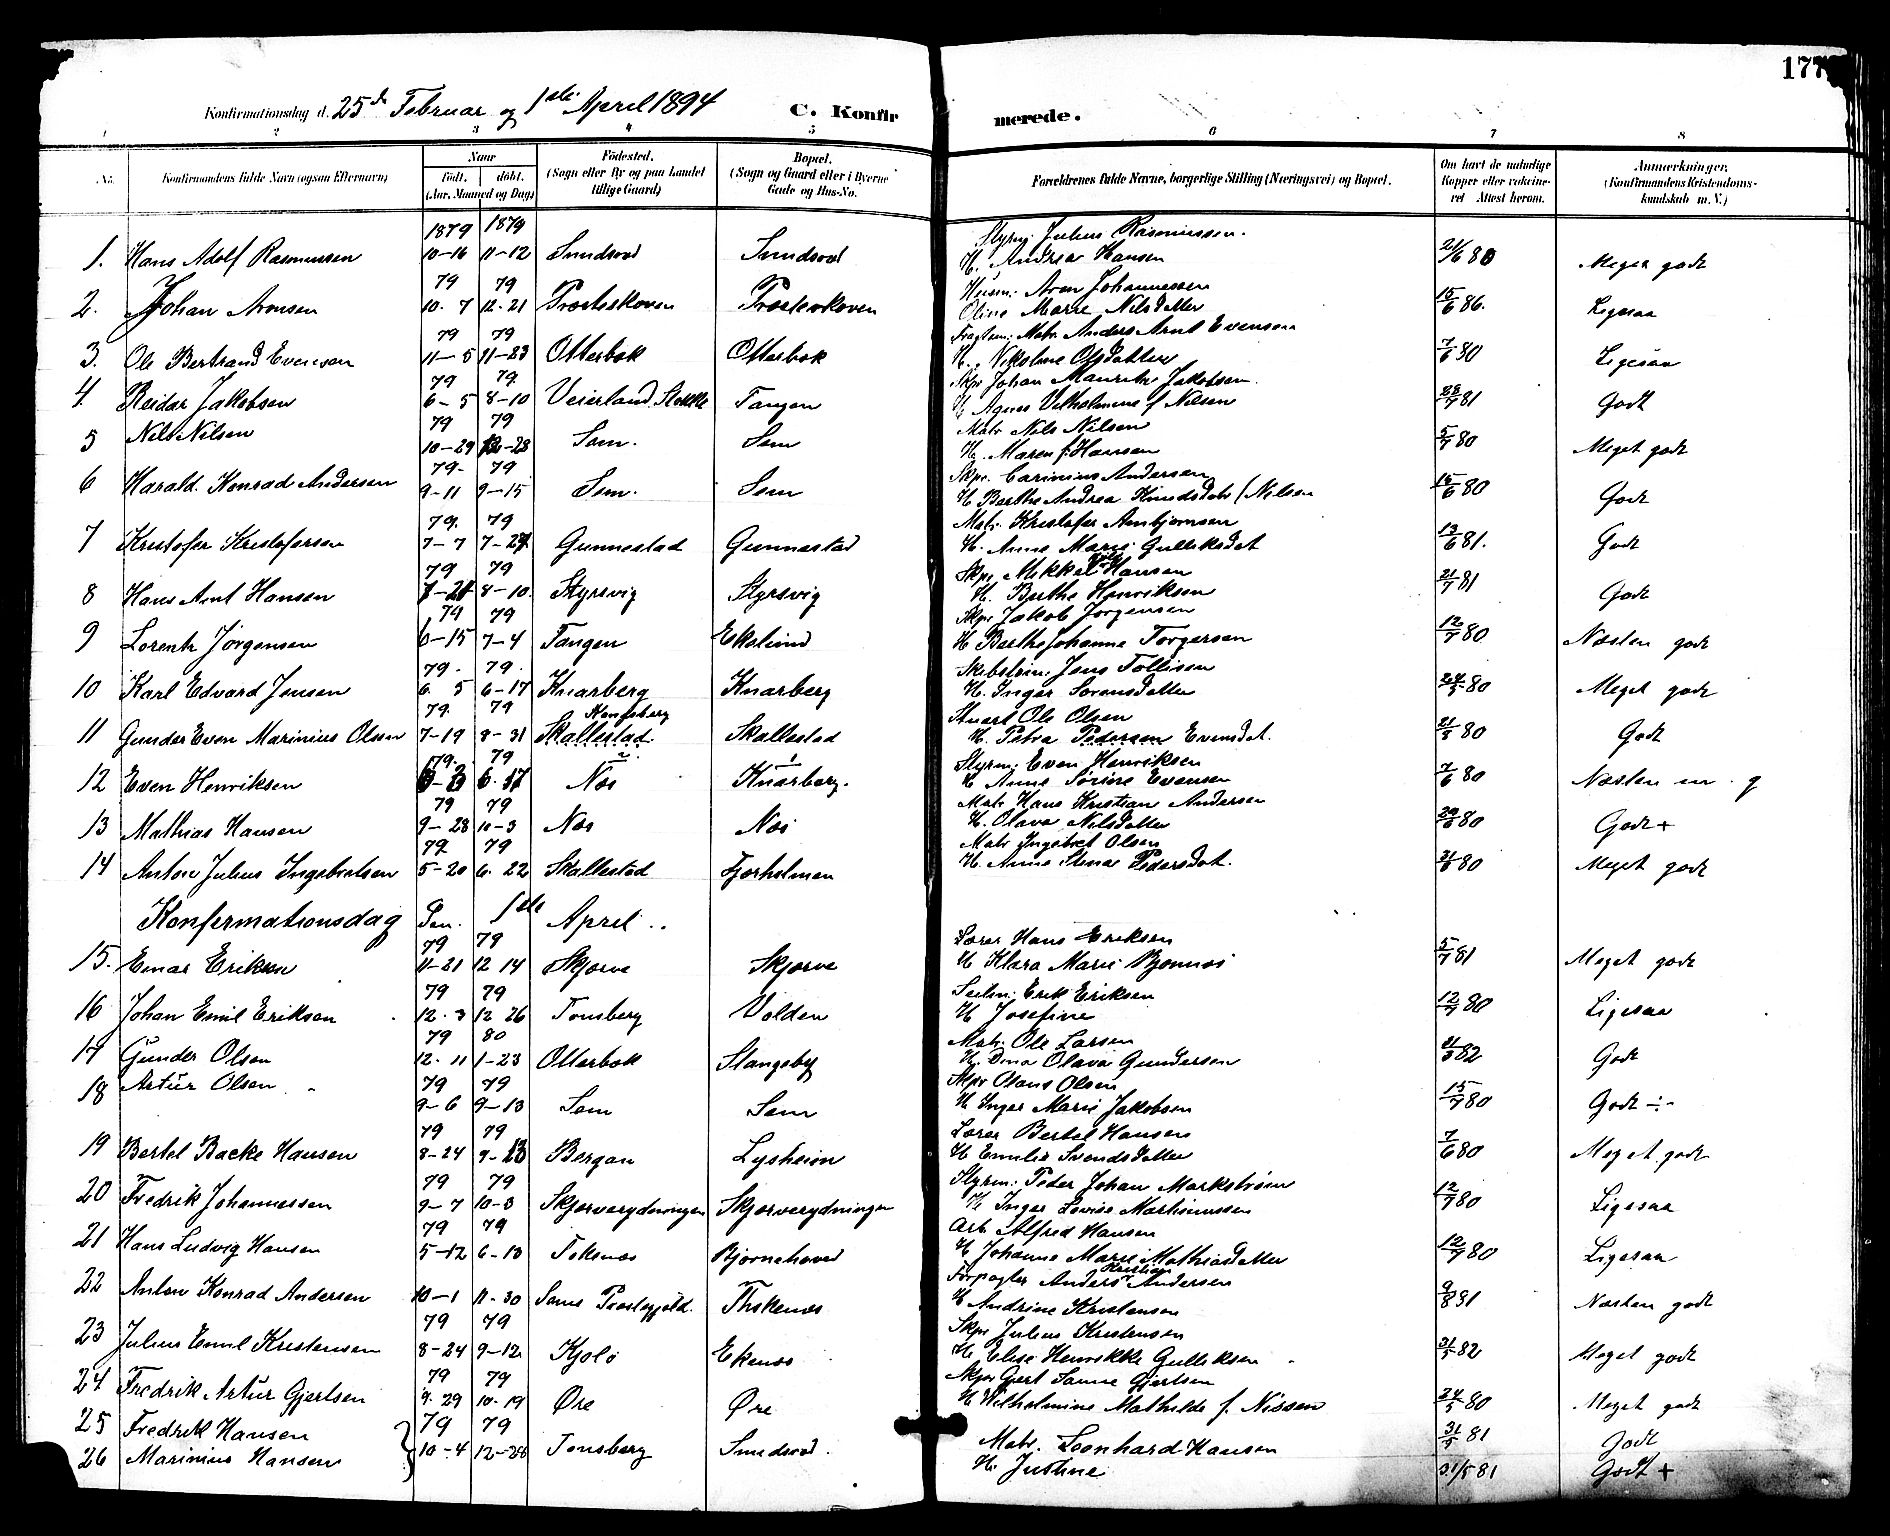 177
Konfirmationsdag d. 25de Februar og 1ste April 1894 C. Konfirmerede.
1 2 3 4 5 6 7 8
No. Konfirmandens fulde Navn (ogsaa Efternavn) Naar Født. døbt. (Aar, Maaned og Dag) Fødested. (Sogn eller By og paa Landet tillige Gaard) Bopæl. (Sogn og Gaard eller i Byerne Gade og Hus-No. Forældrenes fulde Navne, borgerlige Stilling (Næringsvei) og Bopæl. Om havt de naturlige Kopper eller vakcineret Attest herom. Anmærkninger. (Konfirmandens Kristendomskundskab m. V.)
1879 1879 Styrm: Julius Rasmussen.
1. Hans Adolf Rasmussen 10-16 11-12 Smidsrød Smidsrød H. Andrea Hansen 21/6 80 Meget godt
79 79 Husm: Aron Johannessen
2. Johan Aronsen 10. 7 12. 21 Presteskoven Presteskoven Oline Marie Nilsdatter 15/6 86. Ligesaa
79 79 Anders Arnt Evensen
3. Ole Bertrand Evensen 11-5 11-23 Otterbek Otterbek H. Nikoline Olsdatter 7/6 80 Ligesaa
79 79. Skpr Johan Mauritz Jakobsen
4. Reidar Jakobsen 6-5 8-10 Veierland, Stokke Tangen H. Agnes Vilhelmine f. Nilsen 81 Godt
79 79 Matr Nils Nilsen
5 Nils Nilsen 10-29 12-28 Sem. Sem H. Maren f. Hansen 5/7 80 Meget godt
79- 79 Skpr. Carinius Andersen
6 Harald Konrad Andersen 9-11 9-15 Sem. Sem H Berthe Andrea Knudsdatr (Nilsen 15/6 80 Godt
79. 79 Matr. Kristofer Arnbjornsen
7 Kristofer Kristofersen 7-7 7-27 Gunnestad Gunnestad H. Anne Marie Gulleksdat 13/6 81. Godt
79 79 Skpr Mikkel Hansen
8 Hans Arnt Hansen 7-21 8-10. Styrsvig Styrsvig H. Berthe Henriksen 21/7 81 Godt
79 79 Skpr Jakob Jørgensen
9 Lorentz Jørgensen 6-15 7-4 Tangen Ekelund H Berthe Johanne Torgersen 12/7 80 Næsten godt
79. 79. Skibstøm. Jens Tollisen
10 Karl Edvard Jensen 6. 5 6-17 Knarberg Knarberg H. Inger Sørensdatter 80 Meget godt
79. 79 Kongsberg Stuert Ole Olsen
11 Gunder Even Marinius Olsen 7-19 8-31 Skallestad Skallestad H. Petra Pedersen Evensdat. 80 Godt
79. 79 Styrm: Even Henriksen
12 Even Henriksen 6. 17 Nes Knarberg. H Anne Sørine Evensen 7/6 80 Næsten m. g
79 79 Matr Hans Kristian Andersen
13 Mathias Hansen 9-28 10-3 Nes Nes H. Olava Nilsdatter 80 Godt +
79. 79 Matr Ingebret Olsen
14 Anton Julius Ingebretsen 5-20 6. 22 Skallestad Fjerholmen H. Anne Stena Pedersdat. 80 Meget godt
Konfermationsdag Den 1ste April
79 79 Lærer Hans Eriksen
15. Einar Eriksen 11-21 12 14 Skjerve Skjerve H Klara Marie Bjønnes 5/7 81 Meget godt
79 79 Erik Eriksen
16 Johan Emil Eriksen 12. 3 12 26 Tønsberg Volden H Josefine 12/7 80 Ligesaa
79 80 Matr. Ole Larsen
17 Gunder Olsen 12. 11 1-23 Otterbek Stangeby H. Dina Olava Gundersen 82 Godt
79 79 Skpr Olaus Olsen
18 Artur Olsen 9-6 9-13 Sem Sem H Inger Marie Jakobsen 15/7 80 Godt ÷
79 79 Lærer Bertel Hansen
19 Bertel Backe Hansen 8-24 9-13 Bergan Lysheim H Emilie Svendsdatter 7/6 80 Meget godt
79 79 Styrm: Peder Johan Markstrøm
20 Fredrik Johannessen 9-7 10-3 Skjerverydningen Skjerverydningen H. Inger Lovise Martinussen 12/7 80 Ligesaa
79 79 Arb. Alfred Hansen
21 Hans Ludvig Hansen 5-12 6-13 Teksnes Bjørnehoved H Johanne Marie Mathiasdatter 12/7 80 Ligesaa
Forpagter Anders Kristian Andersen
22 Anton Konrad Andersen 10-1 11-30 Sems Prestegjeld. H Andrine Kristensen Næsten godt
79 79 Skpr Julius Kristensen
23 Julius Emil Kristensen 8-24 9-12 Kjølø Ekenes H. Elise Henrikke Gulleksen 82 Meget godt
79 79 Skpr Gjert Sanne Gjertsen
24 Fredrik Artur Gjertsen 9. 29 10. 19 Øre Øre H Wilhelmine Mathilde f. Nissen 24/5 80 Meget godt
25 Fredrik Hansen 79 79 Matr. Leonhard Hansen 31/5 81 Godt
26 Marinius Hansen 10-4 12-28 Tønsberg Smidsrød. H. Justine 31/5 81 Godt +